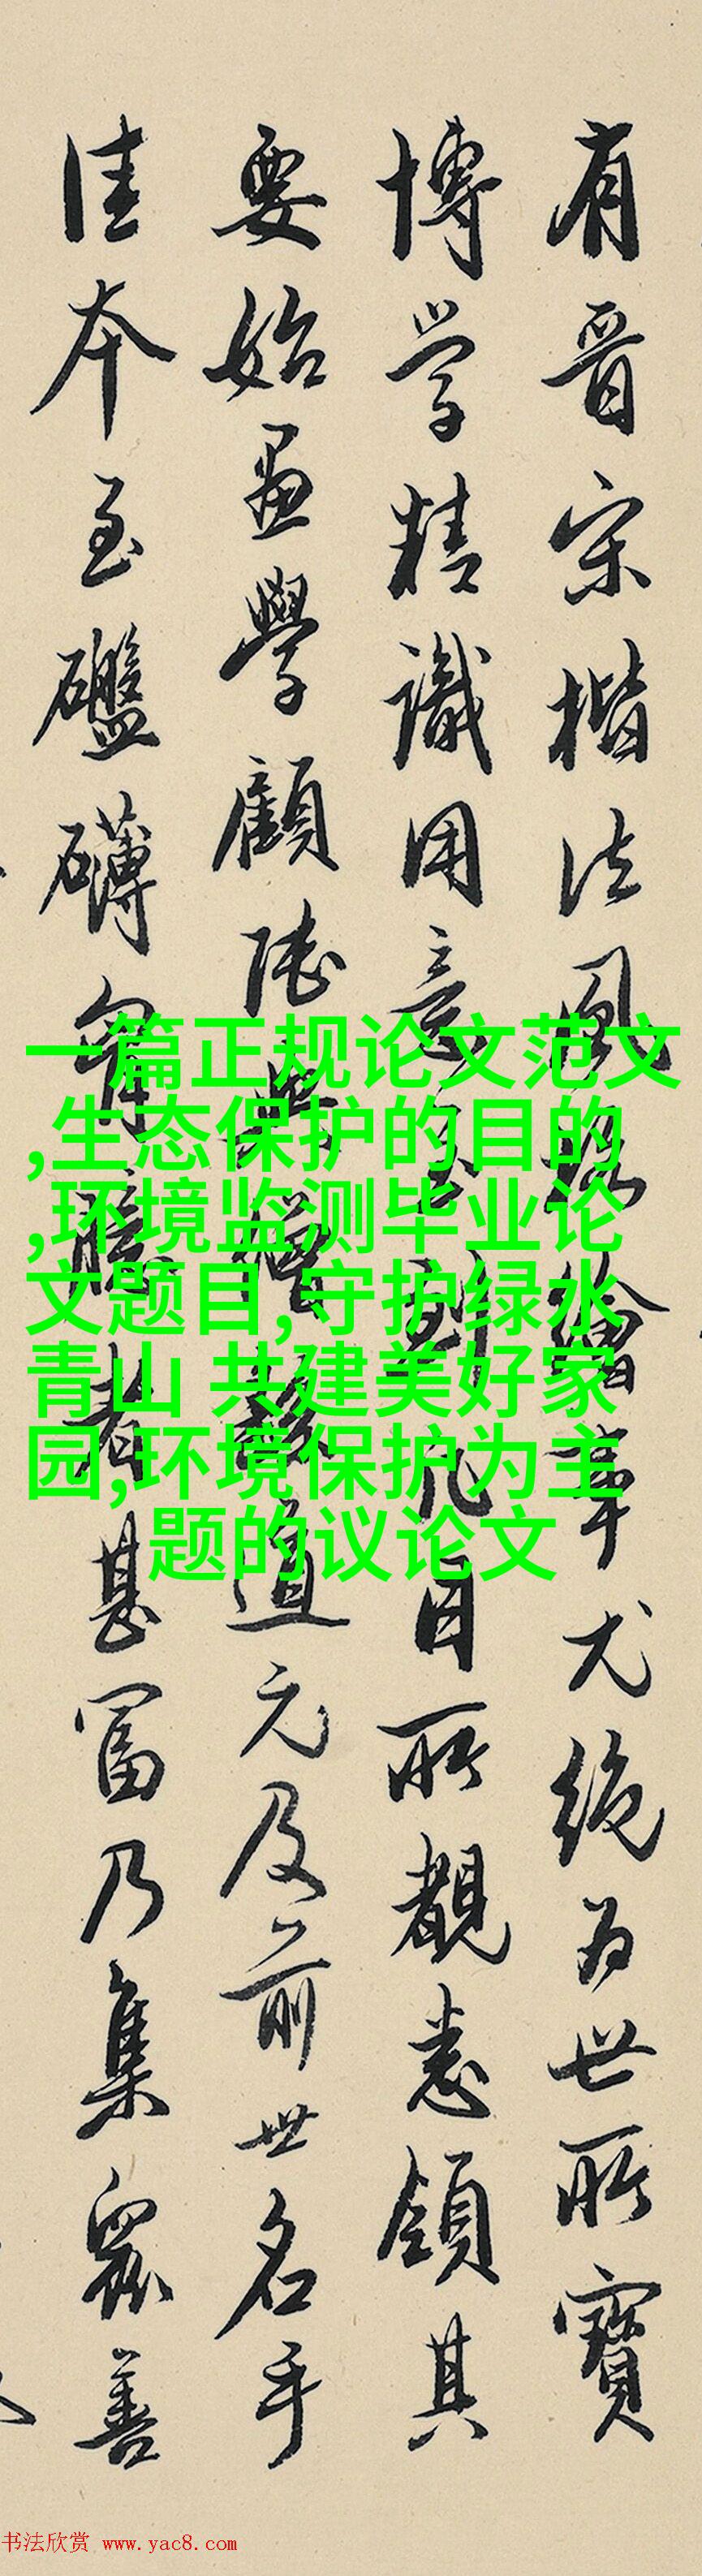 有晋宋楷法風格繪事尤絶为世所寶
博学精識用意至到凡目所覩悉領其
要始畫學顧陸與僧繇道元及前世名手
佳本至礛礴胷臆者甚富乃集众善
一篇正规论文范文
,生态保护的目的
,环境监测毕业论
文题目,守护绿水
青山 共建美好家
园,环境保护为主
题的议论文
书法欣赏 www.yac8.com